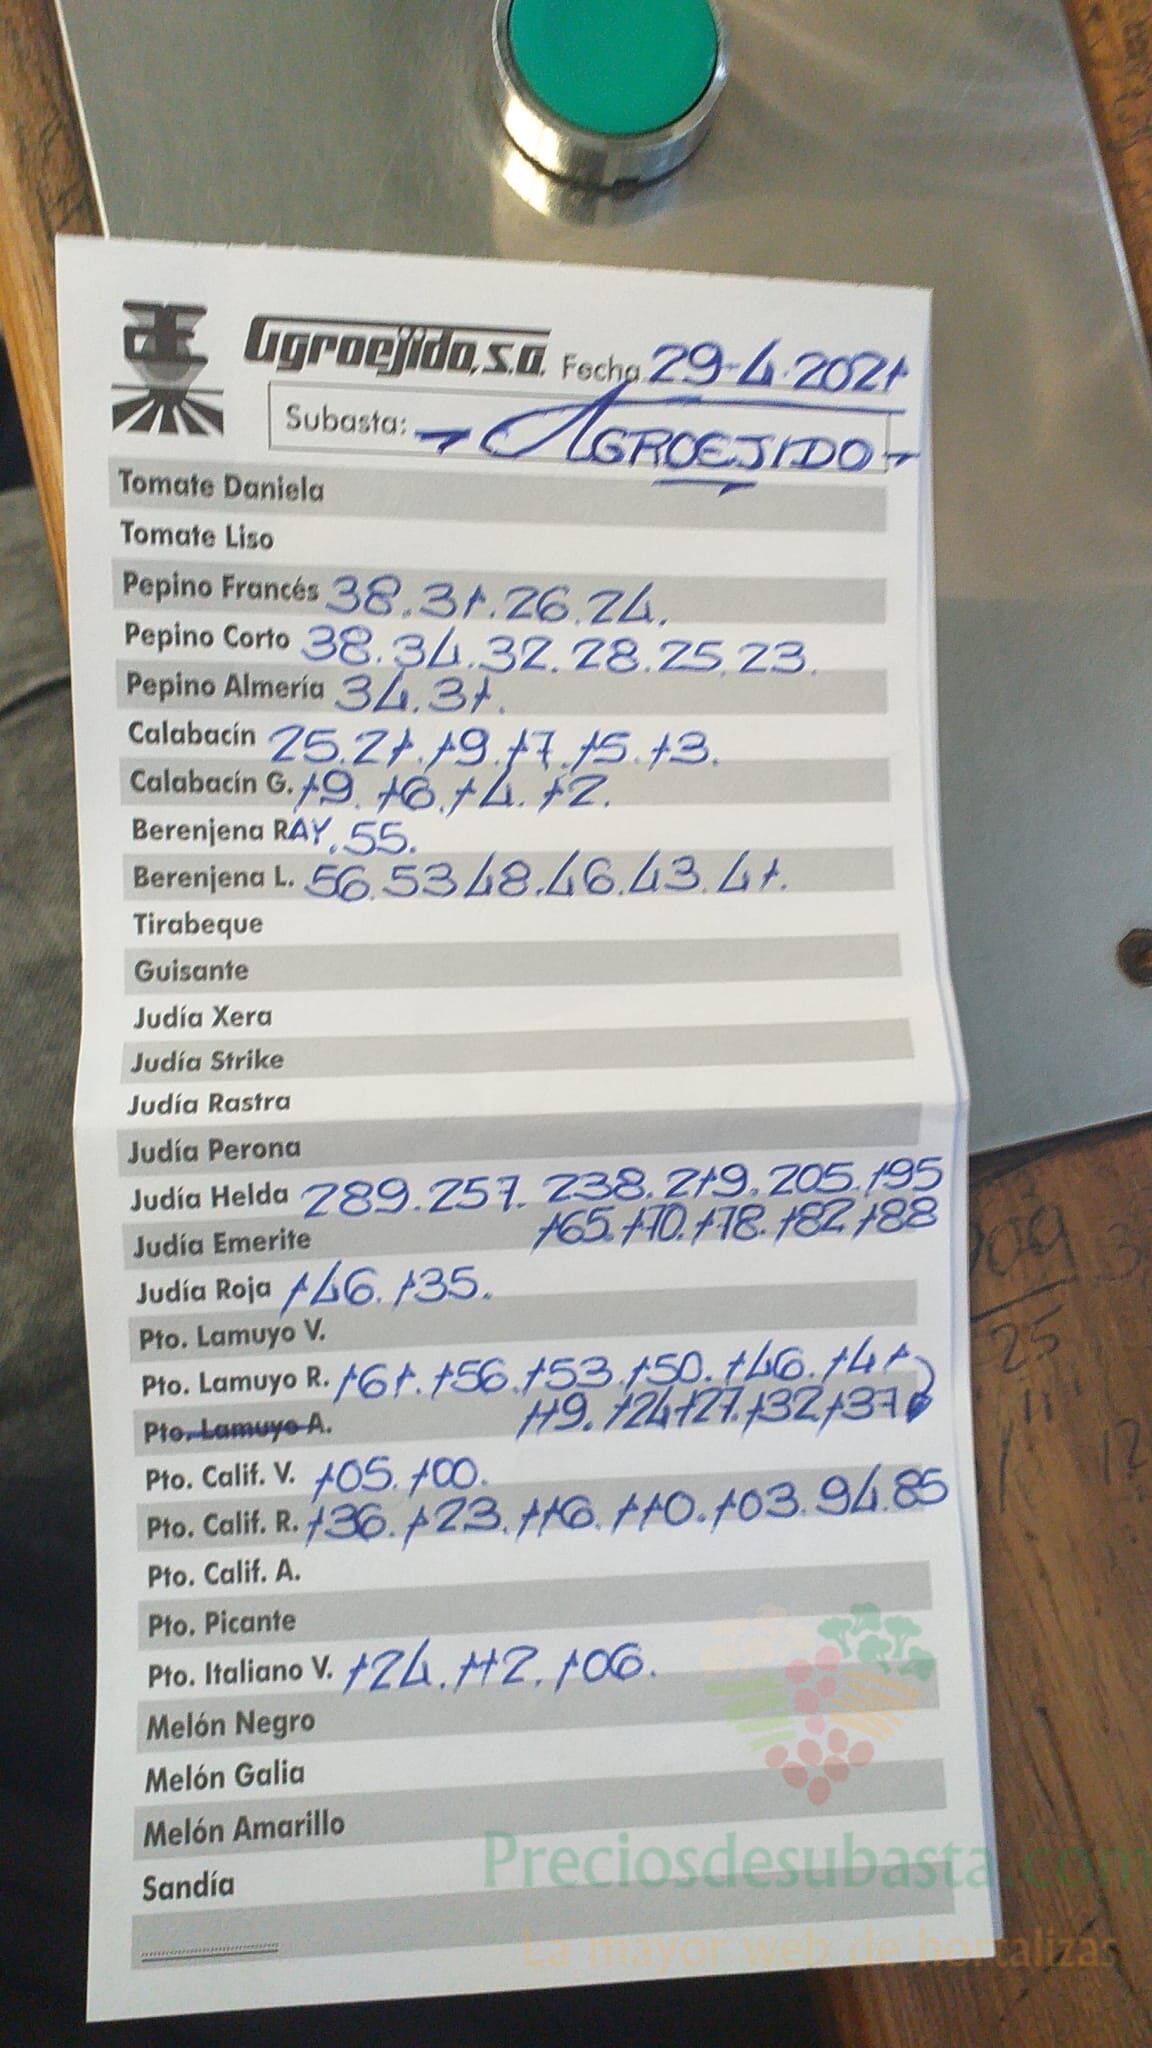 Agroejido, s.a. Fecha 29-4-2021
Subasta: - AGROEJIDO -
Tomate Daniela
Tomate Liso
Pepino Francés 38.31.26.24.
Pepino Corto 38.34.32.28.25.23.
Pepino Almería 34.31.
Calabacín 25.21.19.17.15.13.
Calabacín G. 19.16.14.12.
Berenjena RAY.55.
Berenjena L. 56.53 48.46.43.41.
Tirabeque
Guisante
Judía Xera
Judía Strike
Judía Rastra
Judía Perona
Judía Helda 289.257.238.219.205.195
Judía Emerite 165.170.178.182 188
Judía Roja 146.135.
Pto. Lamuyo V.
Pto. Lamuyo R. 161.156.153.150.146.141
Pto. Lamuyo A. 119.124 127.132 137
Pto. Calif. V. 105.100.
Pto. Calif. R. 136.123.116.110.103.94.85
Pto. Calif. A.
Pto. Picante
Pto. Italiano V. 124.112.106.
Melón Negro
Melón Galia
Melón Amarillo
Preciosdesubasta.com
Sandía
La mayor web de hortalizas